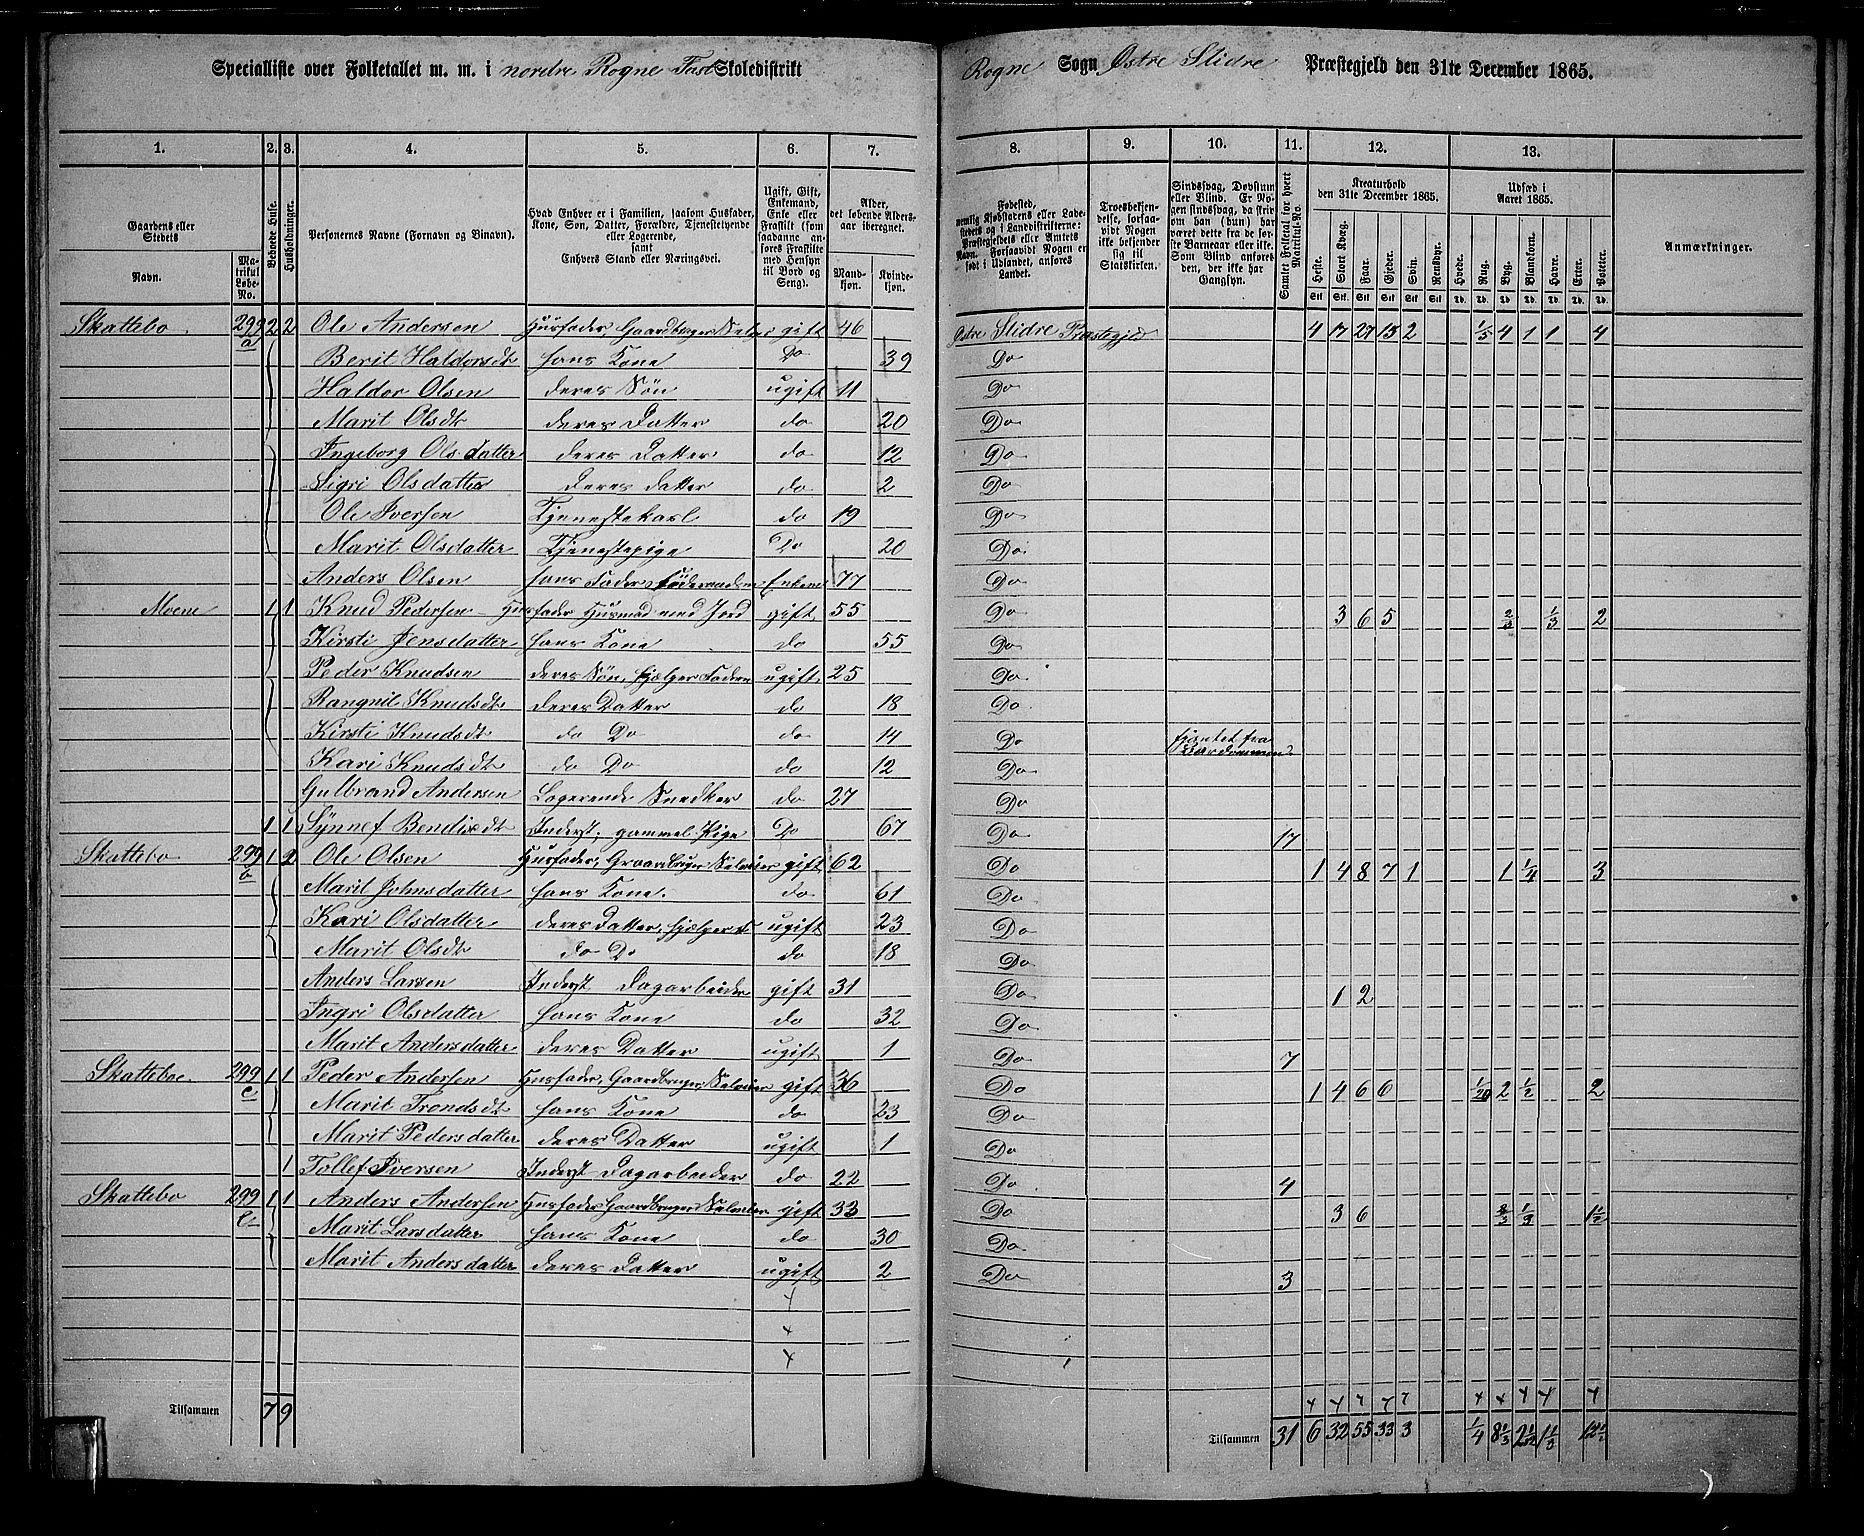 Specialliste over Folketallet m. m. i nordre Rogne Fast Skoledistrikt
Rogne Sogn Østre Slidre Præstegjeld den 31te December 1865.
1. 2. 3. 4. 5. 6. 7. 8. 9. 10. 11. 12. 13.
Gaardens eller Stedets
Navn.
Matrikul Løbe-No.
Beboede Huse.
Husholdninger.
Personernes Navne (Fornavn og Binavn).
Hvad Enhver er i Familien, saasom Husfader, Kone, Søn, Datter, Forældre, Tjenestetyende eller Logerende, samt Enhvers Stand eller Næringsvei.
Ugift, Gift, Enkemand, Enke eller Fraskilt (som saadanne anføres Fraskilte med Hensyn til Bord og Seng).
Alder, det løbende Alders-aar iberegnet.
Mand-kjøn.
Kvinde-kjøn.
Fødested, nemlig Kjøbstadens eller Ladestedets og i Landdistrikterne: Præstegjeldets eller Amtets Navn. Forsaavidt Nogen er født i Udlandet, anføres Landet.
Troesbekjendelse, forsaavidt Nogen ikke bekjender sig til Statskirken.
Sindssvag, Døvstum eller Blind. Er Nogen sindssvag, da skrives om han (hun) har været dette fra de første Barneaar eller ikke. Som Blind anføres den, der ikke har Gangsyn.
Samlet Folketal for hvert Matrikul-No.
Kreaturhold den 31te December 1865.
Heste. Stort Kvæg. Faar. Gjeder. Svin. Rensdyr.
Udsæd i Aaret 1865.
Hvede. Rug. Byg. Blandkorn. Havre. Erter. Poteter.
Anmærkninger.
Skattebo 299 a 2 2 Ole Andersen Husfader, Gaardbruger Selve gift 46 Østre Slidre Præstegjeld 4 17 27 15 2 1/5 4 1 1 4
Berit Haldorsdt hans Kone Do 39 Do
Haldor Olsen deres Søn ugift 11 Do
Marit Olsdt deres Datter do 20 Do
Ingeborg Olsdatter deres Datter do 12 Do
Sigri Olsdatter deres datter do 2 Do
Ole Iversen Tjenestekarl do 19 Do
Marit Olsdatter Tjenestepige Do 20 Do
Anders Olsen hans Fader Føderaadsm Enkem 77 Do
Moene 1 1 Knud Pedersen Husfader Husmad med Jord gift 55 Do 3 6 5 2/3 1/3 2
Kirsti Jensdatter hans Kone do 55 Do
Peder Knudsen deres Søn, hjelper Faderen ugift 25 Do
Rangnil Knudsdt deres Datter do 18 Do
Kirsti Knudsdt do Do do 14 Do fjantet fra Bardommen
Kari Knudsdt do Do do 12 Do
Gulbrand Andersen Logerende Snedker do 27 Do
1 1 Synnef Bendixdt Inderst, gammel Pige Do 67 Do 17
Skattebo 299 b 1 2 Ole Olsen Husfader, Graardbruger Selveier gift 62 Do 1 4 8 7 1 1 1/4 3
Marit Johnsdatter hans Kone. do 61 Do
Kari Olsdatter deres Datter, hjelper t ugift 23 Do
Marit Olsdt do Do do 18 Do
Anders Larsen Inderst Dagarbeider gift 31 Do 1 2
Ingri Olsdatter hans Kone do 32 Do
Marit Andersdatter deres Datter ugift 1 Do 7
Skatteboe 299 c 1 1 Peder Andersen Husfader, Gaardbruger Selveier gift 36 Do 1 4 6 6 1/20 2 1/2 2
Marit Trondsdt hans Kone do 23 Do
Marit Pedersdatter deres Datter ugift 1 Do
1 Tollef Iversen Inderst Dagarbeider do 22 Do 4
Skattebo 299 e 1 1 Anders Andersen Husfader Gaardbruger Selveier gift 33 Do 3 6 2/3 1/3 1 1/2
Marit Larsdatter hans Kone do 30 Do
Marit Andersdatter deres Datter ugift 2 Do 3
Tilsammen 7 9
Tilsammen 31 6 32 55 33 3 1/4 8 1/3 1 1/3 12 1/2